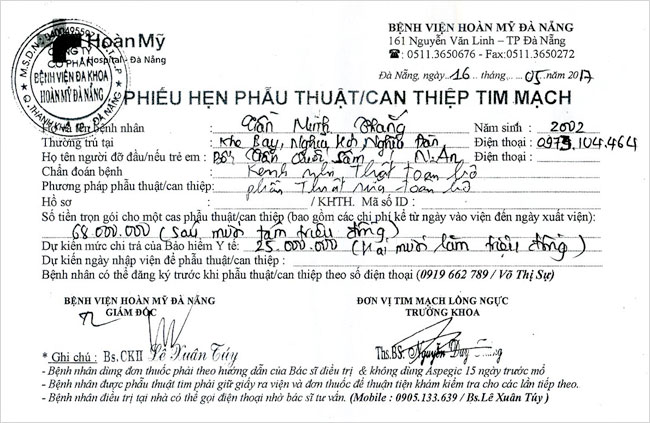 BỆNH VIỆN HOÀN MỸ ĐÀ NẴNG
161 Nguyễn Văn Linh – TP Đà Nẵng
☎: 0511.3650676 - Fax:0511.3650272
Hoàn Mỹ
Hospital - Đà Nẵng
M.S.D.N: 0400495597
CÔNG TY
CỔ PHẦN
BỆNH VIỆN ĐA KHOA
HOÀN MỸ ĐÀ NẴNG
Q. THANH KHÊ - TP. ĐÀ NẴNG
Đà Nẵng, ngày 16 tháng 05 năm 2017
PHIẾU HẸN PHẪU THUẬT/CAN THIỆP TIM MẠCH
Họ và tên bệnh nhân : Trần Minh Thắng Năm sinh : 2002
Thường trú tại : Nghĩa Đàn Điện thoại : 0973.104.464
Họ tên người đỡ đầu/nếu trẻ em : Bố: Trần N.An Điện thoại :
Chẩn đoán bệnh : Kênh nhĩ thất toàn bộ
Phương pháp phẫu thuật/can thiệp: phẫu thuật toàn bộ
Hồ sơ : / KHTH. Mã số ID :
Số tiền trọn gói cho một cas phẫu thuật/can thiệp (bao gồm các chi phí kể từ ngày vào viện đến ngày xuất viện):
68.000.000 (Sáu mươi tám triệu đồng)
Dự kiến mức chi trả của Bảo hiểm Y tế: 25.000.000 (Hai mươi lăm triệu đồng)
Dự kiến ngày nhập viện để phẫu thuật/can thiệp :
Bệnh nhân có thể đăng ký trước khi phẫu thuật/can thiệp theo số điện thoại (0919 662 789 / Võ Thị Sự)
BỆNH VIỆN HOÀN MỸ ĐÀ NẴNG ĐƠN VỊ TIM MẠCH LỒNG NGỰC
GIÁM ĐỐC TRƯỞNG KHOA
* Ghi chú : Bs.CKII Lê Xuân Túy Ths.BS: Nguyễn Duy
- Bệnh nhân dùng đơn thuốc phải theo hướng dẫn của Bác sĩ điều trị & không dùng Aspegic 15 ngày trước mổ
- Bệnh nhân được phẫu thuật tim phải giữ giấy ra viện và đơn thuốc để thuận tiện khám kiểm tra cho các lần tiếp theo.
- Bệnh nhân điều trị tại nhà có thể gọi điện thoại nhờ bác sĩ tư vấn. (Mobile : 0905.133.639 / Bs.Lê Xuân Túy )